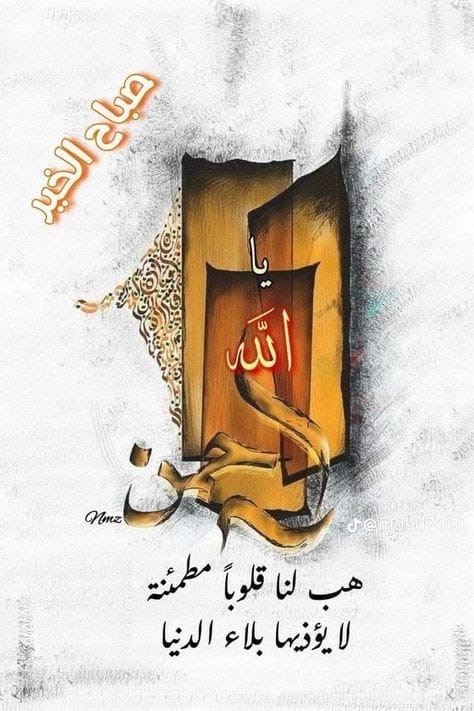 صباح الخير
يا
الله
الرحمن
Nmz
هب لنا قلوباً مطمئنة
لا يؤذيها بلاء الدنيا